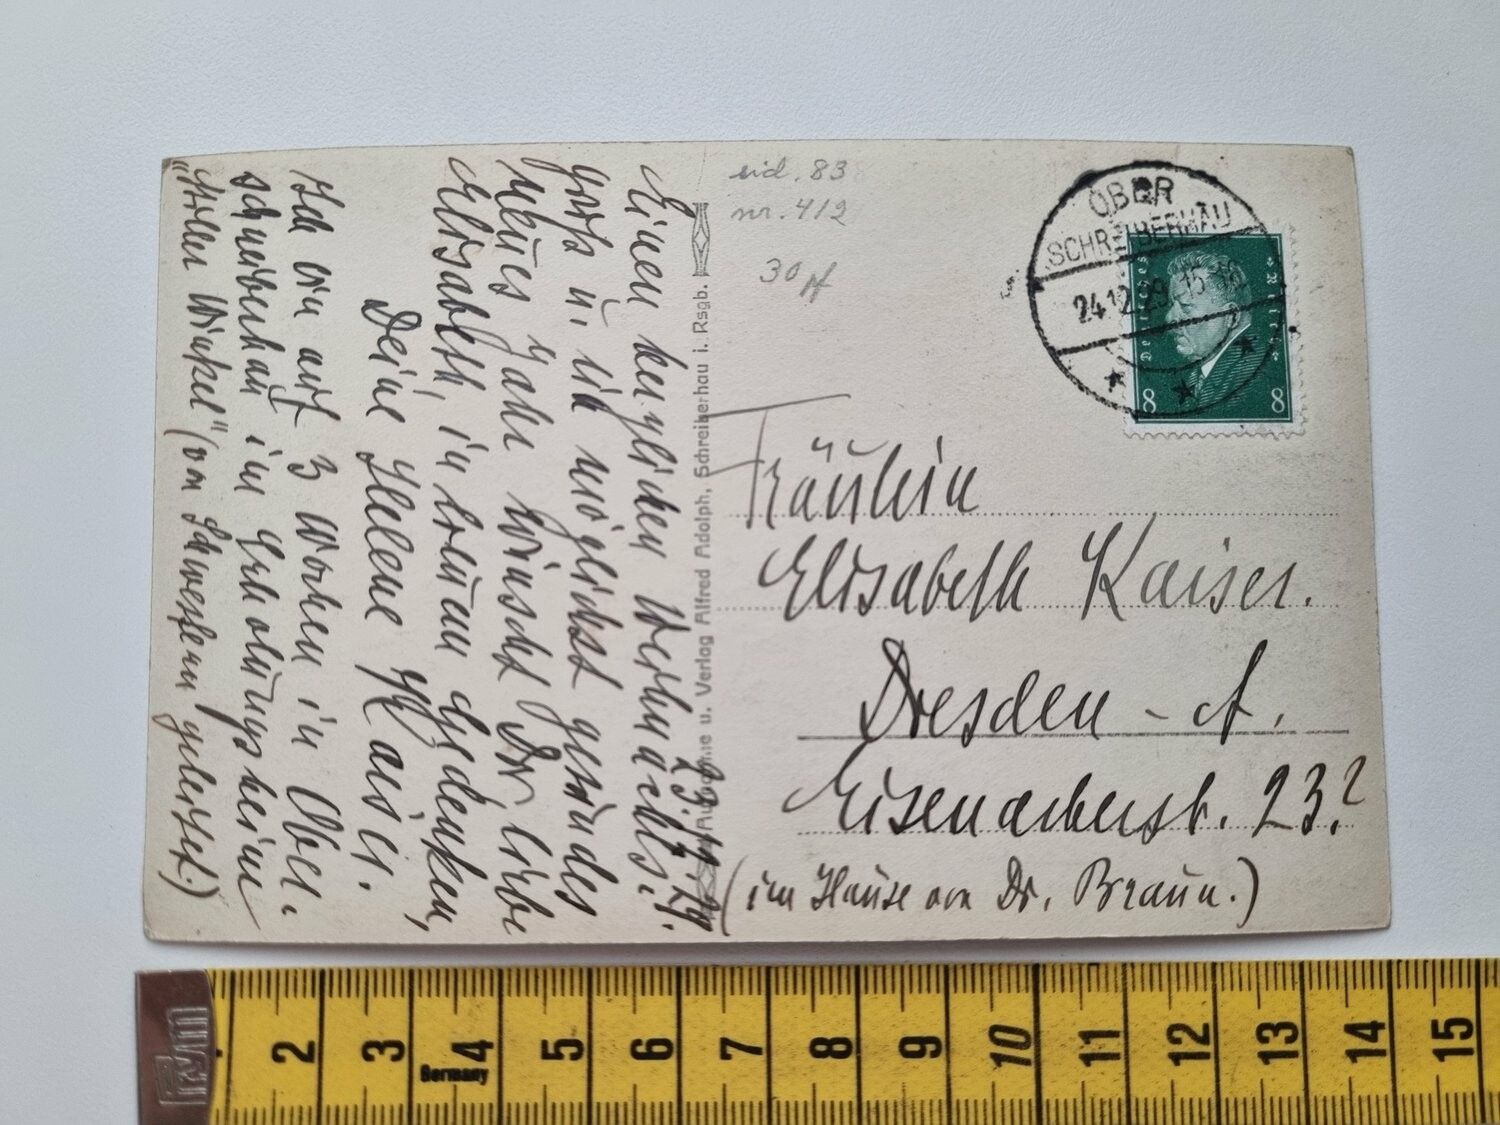 23.12.29.
Einen herzlichen Weihnachts-
gruß u. ein möglichst gesundes
neues Jahr wünscht Dir, liebe
Elisabeth, in treuem Gedenken,
Deine Helene Kaiser.
Ich bin auf 3 Wochen in Ober-
schreiberhau im Erholungsheim
"Stiller Winkel" (von Schwestern geleitet.)
Aufnahme u. Verlag Alfred Adolph, Schreiberhau i. Rsgb.
eid. 83
nr. 412
30 pf
OBER
SCHREIBERHAU
24.12.29. 15-16
Deutsches Reich
8 8
Fräulein
Elisabeth Kaiser.
Dresden - A.
Eisenacherstr. 23?
(im Hause von Dr. Braun.)
2 3 4 5 6 7 8 9 10 11 12 13 14 15
Germany
Prym